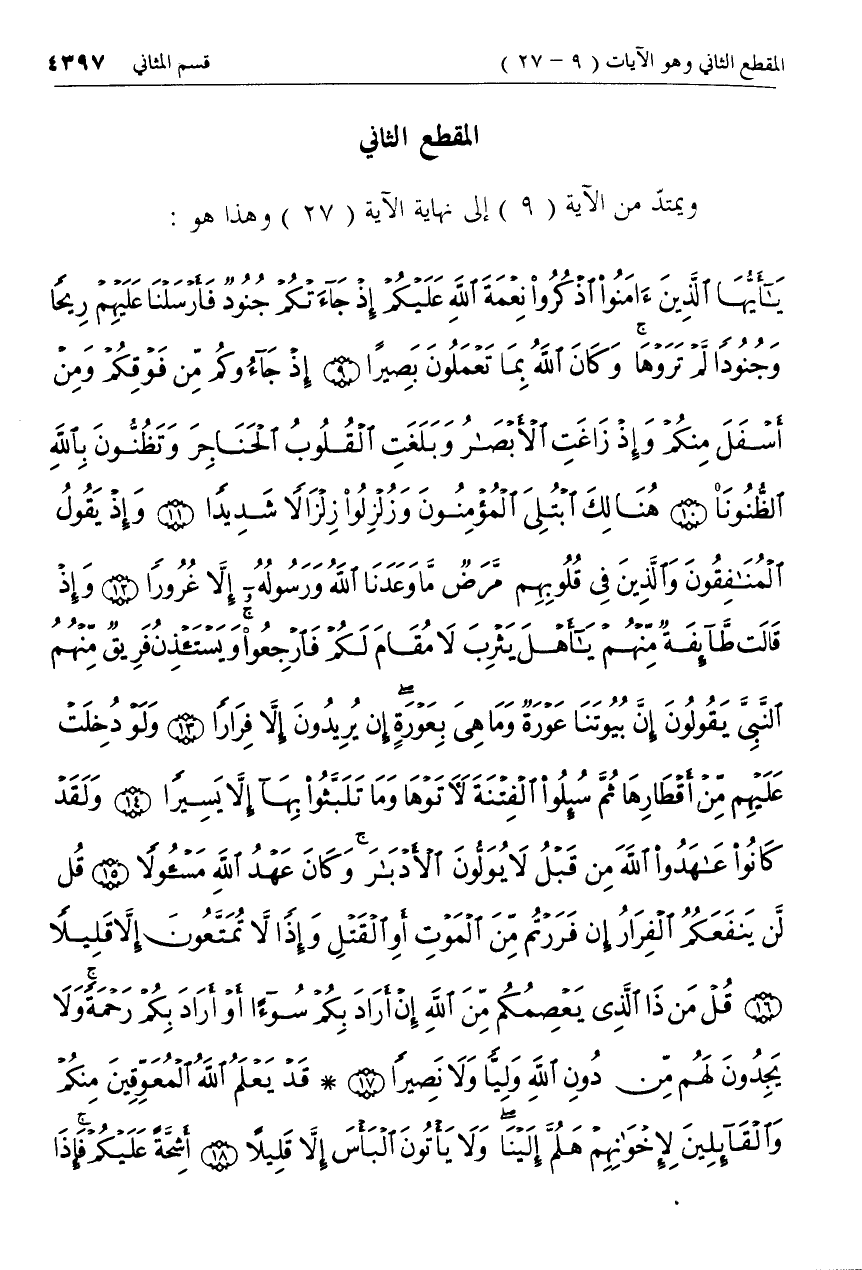 المقطع الثاني وهو الآيات ( ٩ – ٢٧ ) قسم المثاني ٤٣٩٧
المقطع الثاني
ويمتدّ من الآية ( ٩ ) إلى نهاية الآية ( ٢٧ ) وهذا هو :
يَـٰٓأَيُّهَا ٱلَّذِينَ ءَامَنُوا۟ ٱذْكُرُوا۟ نِعْمَةَ ٱللَّهِ عَلَيْكُمْ إِذْ جَآءَتْكُمْ جُنُودٌ فَأَرْسَلْنَا عَلَيْهِمْ رِيحًا
وَجُنُودًا لَّمْ تَرَوْهَا ۚ وَكَانَ ٱللَّهُ بِمَا تَعْمَلُونَ بَصِيرًا ﴿٩﴾ إِذْ جَآءُوكُم مِّن فَوْقِكُمْ وَمِنْ
أَسْفَلَ مِنكُمْ وَإِذْ زَاغَتِ ٱلْأَبْصَـٰرُ وَبَلَغَتِ ٱلْقُلُوبُ ٱلْحَنَاجِرَ وَتَظُنُّونَ بِٱللَّهِ
ٱلظُّنُونَا۠ ﴿١٠﴾ هُنَالِكَ ٱبْتُلِىَ ٱلْمُؤْمِنُونَ وَزُلْزِلُوا۟ زِلْزَالًا شَدِيدًا ﴿١١﴾ وَإِذْ يَقُولُ
ٱلْمُنَـٰفِقُونَ وَٱلَّذِينَ فِى قُلُوبِهِم مَّرَضٌ مَّا وَعَدَنَا ٱللَّهُ وَرَسُولُهُۥٓ إِلَّا غُرُورًا ﴿١٢﴾ وَإِذْ
قَالَت طَّآئِفَةٌ مِّنْهُمْ يَـٰٓأَهْلَ يَثْرِبَ لَا مُقَامَ لَكُمْ فَٱرْجِعُوا۟ ۚ وَيَسْتَـْٔذِنُ فَرِيقٌ مِّنْهُمُ
ٱلنَّبِىَّ يَقُولُونَ إِنَّ بُيُوتَنَا عَوْرَةٌ وَمَا هِىَ بِعَوْرَةٍ ۖ إِن يُرِيدُونَ إِلَّا فِرَارًا ﴿١٣﴾ وَلَوْ دُخِلَتْ
عَلَيْهِم مِّنْ أَقْطَارِهَا ثُمَّ سُئِلُوا۟ ٱلْفِتْنَةَ لَـَٔاتَوْهَا وَمَا تَلَبَّثُوا۟ بِهَآ إِلَّا يَسِيرًا ﴿١٤﴾ وَلَقَدْ
كَانُوا۟ عَـٰهَدُوا۟ ٱللَّهَ مِن قَبْلُ لَا يُوَلُّونَ ٱلْأَدْبَـٰرَ ۚ وَكَانَ عَهْدُ ٱللَّهِ مَسْـُٔولًا ﴿١٥﴾ قُل
لَّن يَنفَعَكُمُ ٱلْفِرَارُ إِن فَرَرْتُم مِّنَ ٱلْمَوْتِ أَوِ ٱلْقَتْلِ وَإِذًا لَّا تُمَتَّعُونَ إِلَّا قَلِيلًا
﴿١٦﴾ قُلْ مَن ذَا ٱلَّذِى يَعْصِمُكُم مِّنَ ٱللَّهِ إِنْ أَرَادَ بِكُمْ سُوٓءًا أَوْ أَرَادَ بِكُمْ رَحْمَةً ۚ وَلَا
يَجِدُونَ لَهُم مِّن دُونِ ٱللَّهِ وَلِيًّا وَلَا نَصِيرًا ﴿١٧﴾ * قَدْ يَعْلَمُ ٱللَّهُ ٱلْمُعَوِّقِينَ مِنكُمْ
وَٱلْقَآئِلِينَ لِإِخْوَٰنِهِمْ هَلُمَّ إِلَيْنَا ۖ وَلَا يَأْتُونَ ٱلْبَأْسَ إِلَّا قَلِيلًا ﴿١٨﴾ أَشِحَّةً عَلَيْكُمْ ۖ فَإِذَا